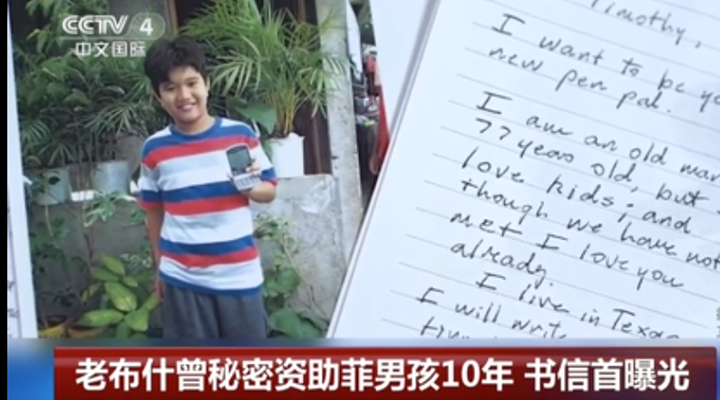 CCTV 4
中文国际
Timothy,
I want to be yo
new pen pal.
I am an old man
77 years old, but
love kids; and
though we have not
met I love you
already.
I live in Texas
I will write
老布什曾秘密资助菲男孩10年 书信首曝光